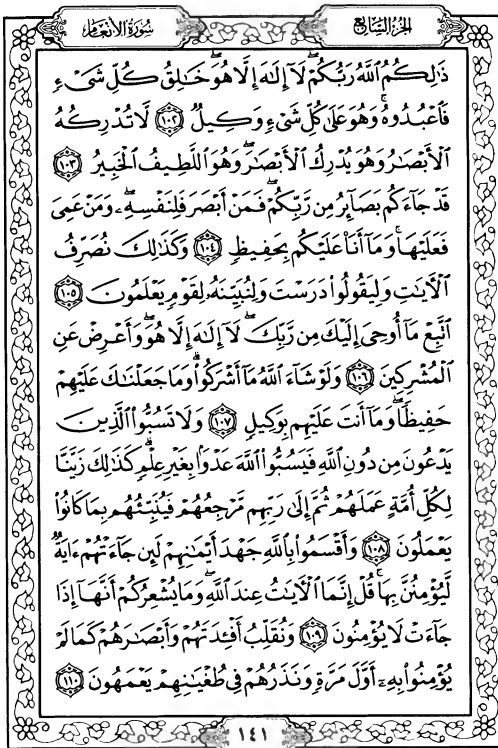 سُورَةُ الأَنْعَامِ
الجُزْءُ السَّابِعُ
ذَٰلِكُمُ اللَّهُ رَبُّكُمْ ۖ لَا إِلَٰهَ إِلَّا هُوَ ۖ خَالِقُ كُلِّ شَيْءٍ
فَاعْبُدُوهُ ۚ وَهُوَ عَلَىٰ كُلِّ شَيْءٍ وَكِيلٌ ١٠٢ لَّا تُدْرِكُهُ
الْأَبْصَارُ وَهُوَ يُدْرِكُ الْأَبْصَارَ ۖ وَهُوَ اللَّطِيفُ الْخَبِيرُ ١٠٣
قَدْ جَاءَكُم بَصَائِرُ مِن رَّبِّكُمْ ۖ فَمَنْ أَبْصَرَ فَلِنَفْسِهِ ۖ وَمَنْ عَمِيَ
فَعَلَيْهَا ۚ وَمَا أَنَا عَلَيْكُم بِحَفِيظٍ ١٠٤ وَكَذَٰلِكَ نُصَرِّفُ
الْآيَاتِ وَلِيَقُولُوا دَرَسْتَ وَلِنُبَيِّنَهُ لِقَوْمٍ يَعْلَمُونَ ١٠٥
اتَّبِعْ مَا أُوحِيَ إِلَيْكَ مِن رَّبِّكَ ۖ لَا إِلَٰهَ إِلَّا هُوَ ۖ وَأَعْرِضْ عَنِ
الْمُشْرِكِينَ ١٠٦ وَلَوْ شَاءَ اللَّهُ مَا أَشْرَكُوا ۗ وَمَا جَعَلْنَاكَ عَلَيْهِمْ
حَفِيظًا ۖ وَمَا أَنتَ عَلَيْهِم بِوَكِيلٍ ١٠٧ وَلَا تَسُبُّوا الَّذِينَ
يَدْعُونَ مِن دُونِ اللَّهِ فَيَسُبُّوا اللَّهَ عَدْوًا بِغَيْرِ عِلْمٍ ۗ كَذَٰلِكَ زَيَّنَّا
لِكُلِّ أُمَّةٍ عَمَلَهُمْ ثُمَّ إِلَىٰ رَبِّهِم مَّرْجِعُهُمْ فَيُنَبِّئُهُم بِمَا كَانُوا
يَعْمَلُونَ ١٠٨ وَأَقْسَمُوا بِاللَّهِ جَهْدَ أَيْمَانِهِمْ لَئِن جَاءَتْهُمْ آيَةٌ
لَّيُؤْمِنُنَّ بِهَا ۚ قُلْ إِنَّمَا الْآيَاتُ عِندَ اللَّهِ ۖ وَمَا يُشْعِرُكُمْ أَنَّهَا إِذَا
جَاءَتْ لَا يُؤْمِنُونَ ١٠٩ وَنُقَلِّبُ أَفْئِدَتَهُمْ وَأَبْصَارَهُمْ كَمَا لَمْ
يُؤْمِنُوا بِهِ أَوَّلَ مَرَّةٍ وَنَذَرُهُمْ فِي طُغْيَانِهِمْ يَعْمَهُونَ ١١٠
١٤١